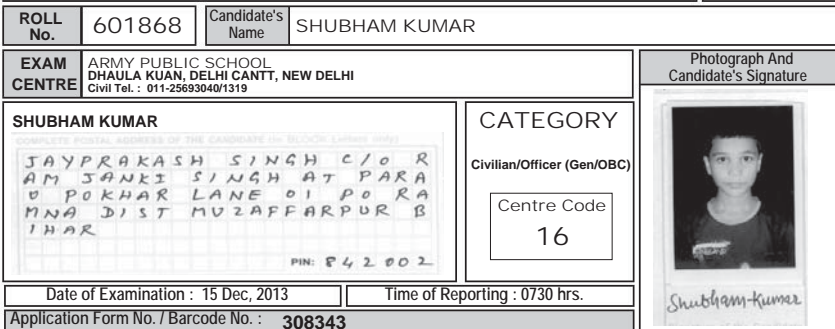 ROLL No.
601868
Candidate's Name
SHUBHAM KUMAR
EXAM CENTRE
ARMY PUBLIC SCHOOL
DHAULA KUAN, DELHI CANTT, NEW DELHI
Civil Tel. : 011-25693040/1319
Photograph And
Candidate's Signature
SHUBHAM KUMAR
COMPLETE POSTAL ADDRESS OF THE CANDIDATE (In BLOCK Letters only)
JAYPRAKASH SINGH C/O R
AM JANKI SINGH AT PARA
O POKHAR LANE 01 PO RA
MNA DIST MUZAFFARPUR B
IHAR
PIN: 842002
CATEGORY
Civilian/Officer (Gen/OBC)
Centre Code
16
Shubham Kumar
Date of Examination : 15 Dec, 2013
Time of Reporting : 0730 hrs.
Application Form No. / Barcode No. : 308343